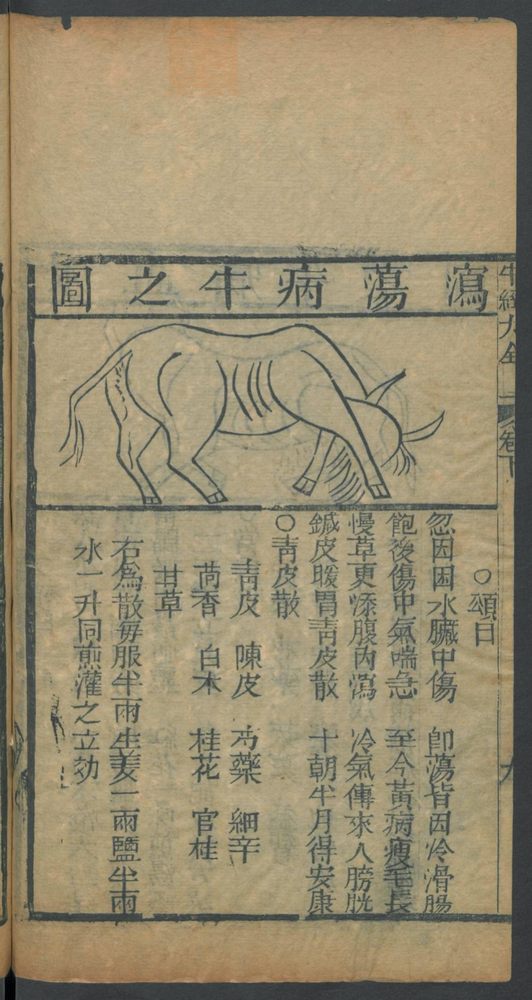 瀉蕩病牛之圖
牛經大全 卷下
○頌曰
忽因困水臟中傷 即蕩皆因冷滑腸
飽後傷中氣喘急 至今黃病瘦毛長
慢草更添腹內瀉 冷氣傳來入膀胱
鍼皮暖胃青皮散 十朝半月得安康
○青皮散
青皮 陳皮 芍藥 細辛
茴香 白朮 桂花 官桂
甘草
右為散每服半兩生姜一兩鹽半兩
水一升同煎灌之立効
九